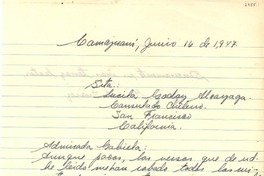 Camajuaní, Junio 16 de 1947
Srta.
Lucila Godoy Alcayaga.
Consulado Chileno.
San Francisco
California.
Admirada Gabriela:
Aunque pocos, los versos que de ud.
he leído me han robado todas las mi-